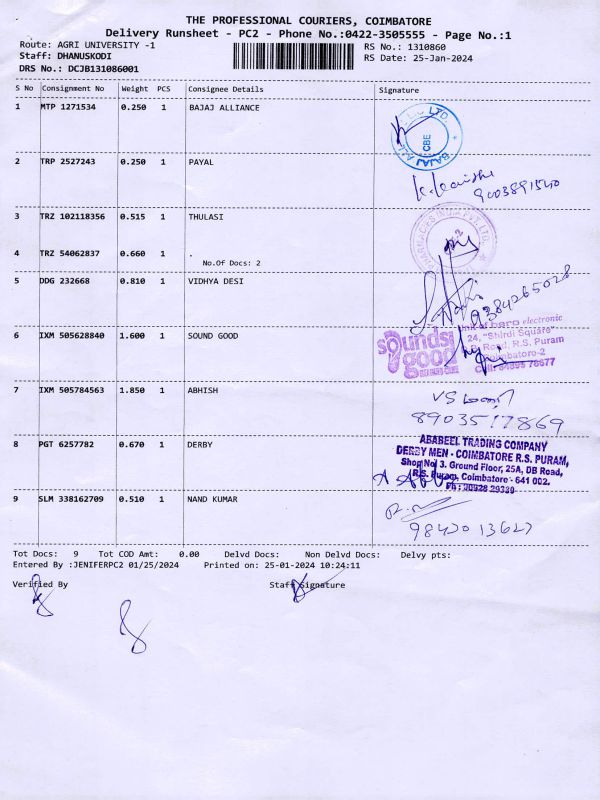 THE PROFESSIONAL COURIERS, COIMBATORE
Delivery Runsheet - PC2 - Phone No.:0422-3505555 - Page No.:1
Route: AGRI UNIVERSITY -1 RS No.: 1310860
Staff: DHANUSKODI RS Date: 25-Jan-2024
DRS No.: DCJB131086001
S No Consignment No Weight PCS Consignee Details Signature
1 MTP 1271534 0.250 1 BAJAJ ALLIANCE
CBE
2 TRP 2527243 0.250 1 PAYAL
9003891540
3 TRZ 102118356 0.515 1 THULASI
4 TRZ 54062837 0.660 1 .
No.Of Docs: 2
5 DDG 232668 0.810 1 VIDHYA DESI
9384265028
6 IXM 505628840 1.600 1 SOUND GOOD
electronic
24, "Shirdi Square"
Road, R.S. Puram
Coimbatore-2
sounds good
7 IXM 505784563 1.850 1 ABHISH
8903517869
8 PGT 6257782 0.670 1 DERBY
ABABEEL TRADING COMPANY
DERBY MEN - COIMBATORE R.S. PURAM,
Shop No 3. Ground Floor, 25A, DB Road,
R.S. Puram, Coimbatore - 641 002.
9 SLM 338162709 0.510 1 NAND KUMAR
9842013627
Tot Docs: 9 Tot COD Amt: 0.00 Delvd Docs: Non Delvd Docs: Delvy pts:
Entered By :JENIFERPC2 01/25/2024 Printed on: 25-01-2024 10:24:11
Verified By Staff Signature